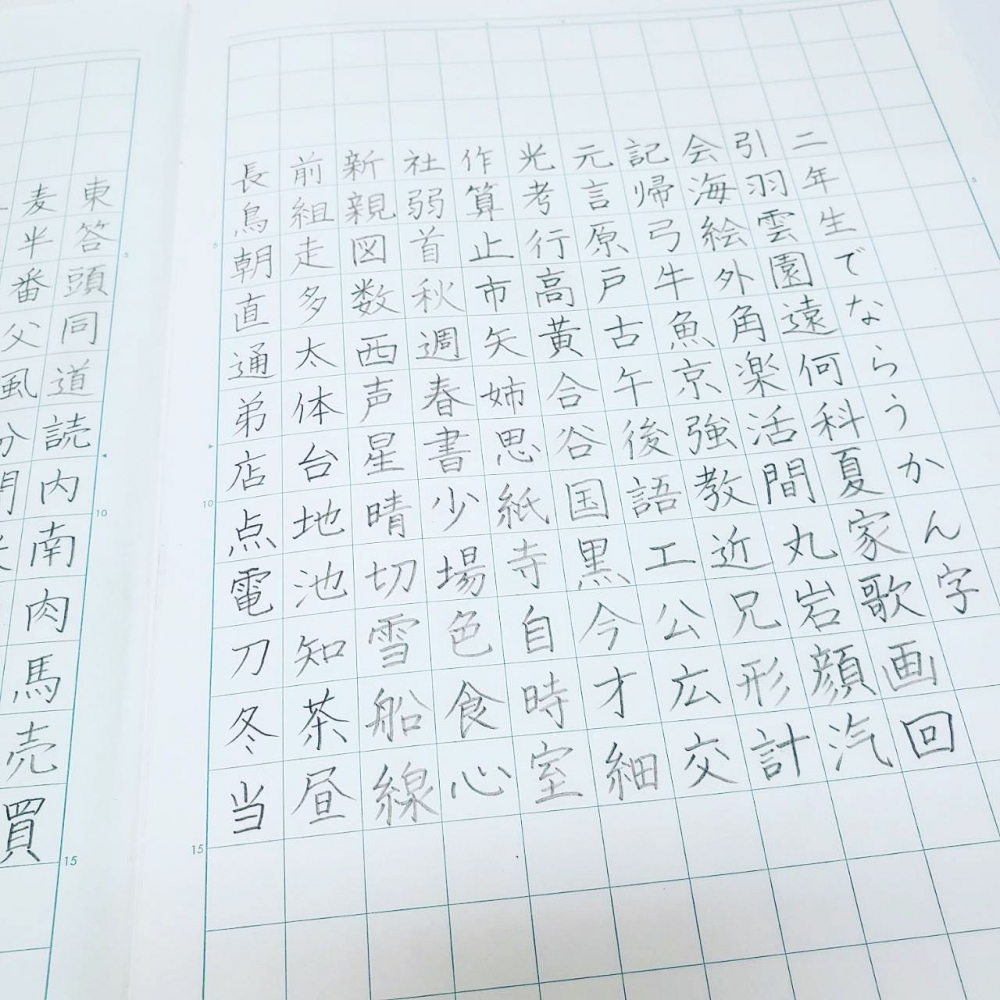 二年生でならうかん字
引羽雲園遠何科夏家歌画回
会海絵外角楽活間丸岩顔汽
記帰弓牛魚京強教近兄形計
元言原戸古午後語工公広交
光考行高黄合谷国黒今才細
作算止市矢姉思紙寺自時室
社弱首秋週春書少場色食心
新親図数西声星晴切雪船線
前組走多太体台地池知茶昼
長鳥朝直通弟店点電刀冬当
5
10
15
東答頭同道読内南肉馬売買
麦半番父風分
10
15